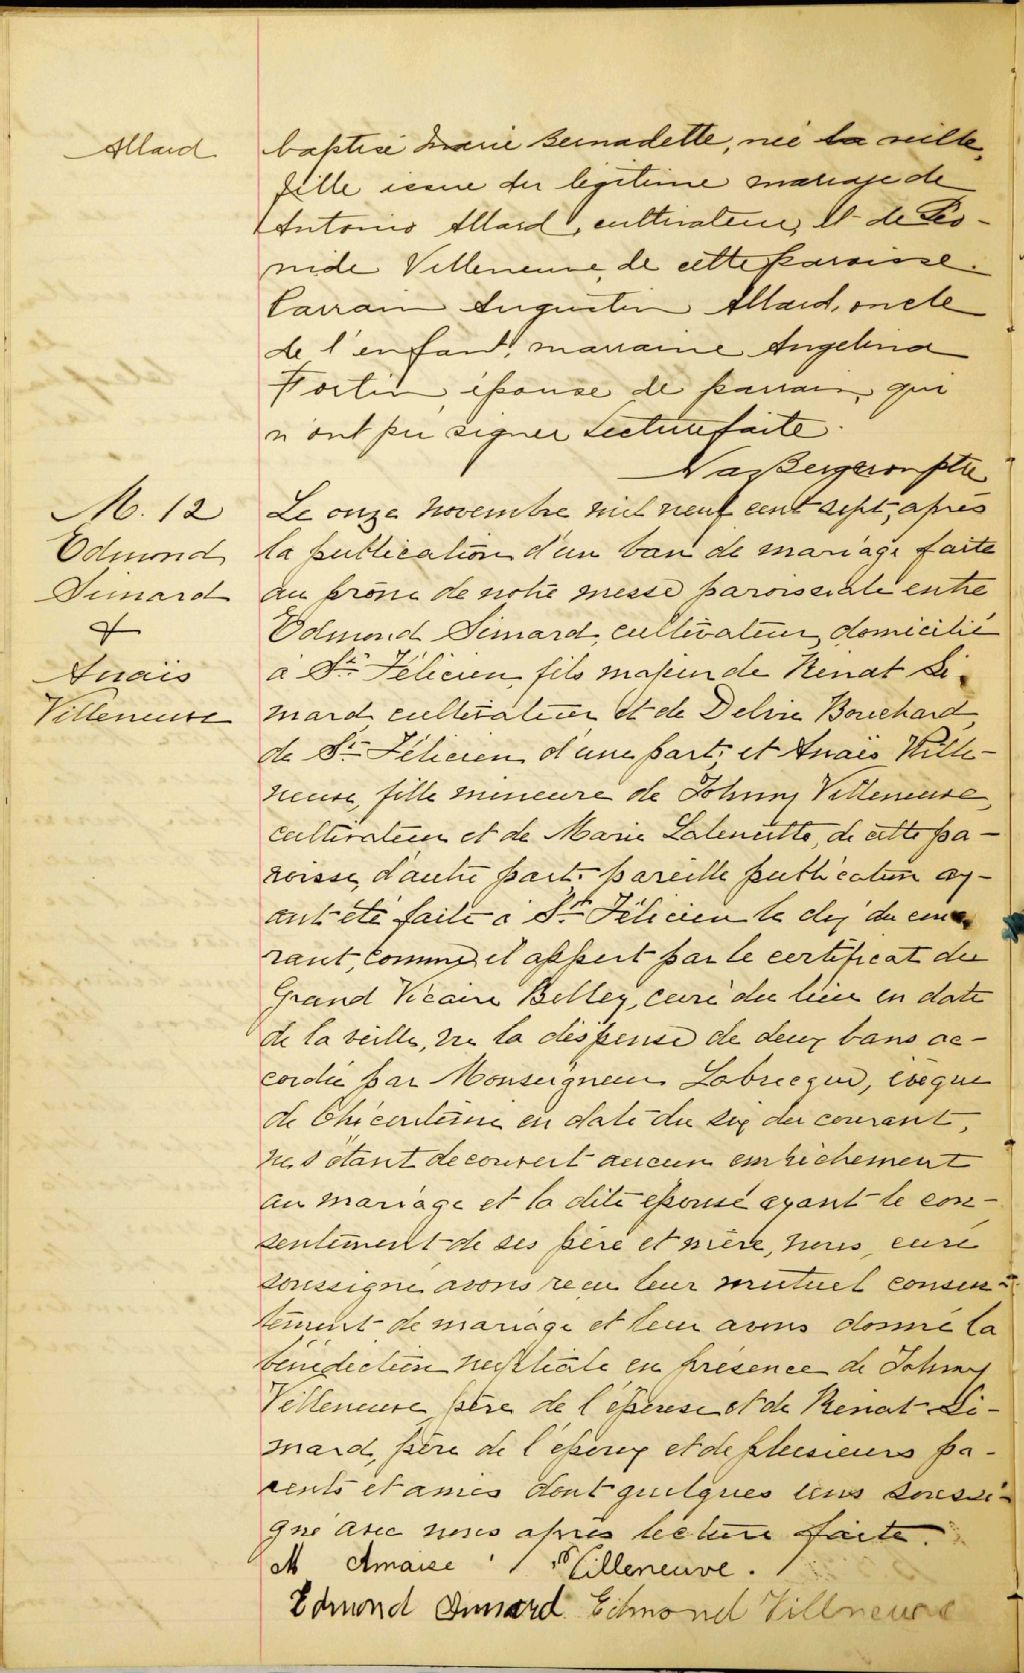 Allard
baptisé Marie Bernadette, née la veille,
fille issue du légitime mariage de
Antonio Allard, cultivateur, et de Léo-
nide Villeneuve, de cette paroisse.
Parrain Augustin Allard, oncle
de l'enfant, marraine Angelina
Fortin, épouse de parrain, qui
n'ont pu signer. Lecture faite.
Naz Bergeron ptre
M. 12
Edmond
Simard
&
Anaïs
Villeneuve
Le onze novembre mil neuf cent sept, après
la publication d'un ban de mariage faite
au prône de notre messe paroissiale entre
Edmond Simard, cultivateur, domicilié
à St Félicien, fils majeur de Rénat Si-
mard, cultivateur et de Delvie Bouchard,
de St Félicien d'une part; et Anaïs Ville-
neuve, fille mineure de Johnny Villeneuve,
cultivateur et de Marie, de cette pa-
roisse, d'autre part; pareille publication ay-
ant été faite à St Félicien le dix du cou-
rant, comme il appert par le certificat du
Grand Vicaire Belley, curé du lieu en date
de la veille, vu la dispense de deux bans ac-
cordée par Monseigneur Labrecque, évêque
de Chicoutimi en date du six du courant,
ne s'étant découvert aucun empêchement
au mariage et la dite épouse ayant le con-
sentement de ses père et mère, nous, curé
soussigné avons reçu leur mutuel consen-
tement de mariage et leur avons donné la
bénédiction nuptiale en présence de Johnny
Villeneuve, père de l'épouse et de Rénat Si-
mard, père de l'époux et de plusieurs pa-
rents et amis dont quelques uns soussi-
gné avec nous après lecture faite.
M Amaise Villeneuve.
Edmond Simard Edmond Villneuve